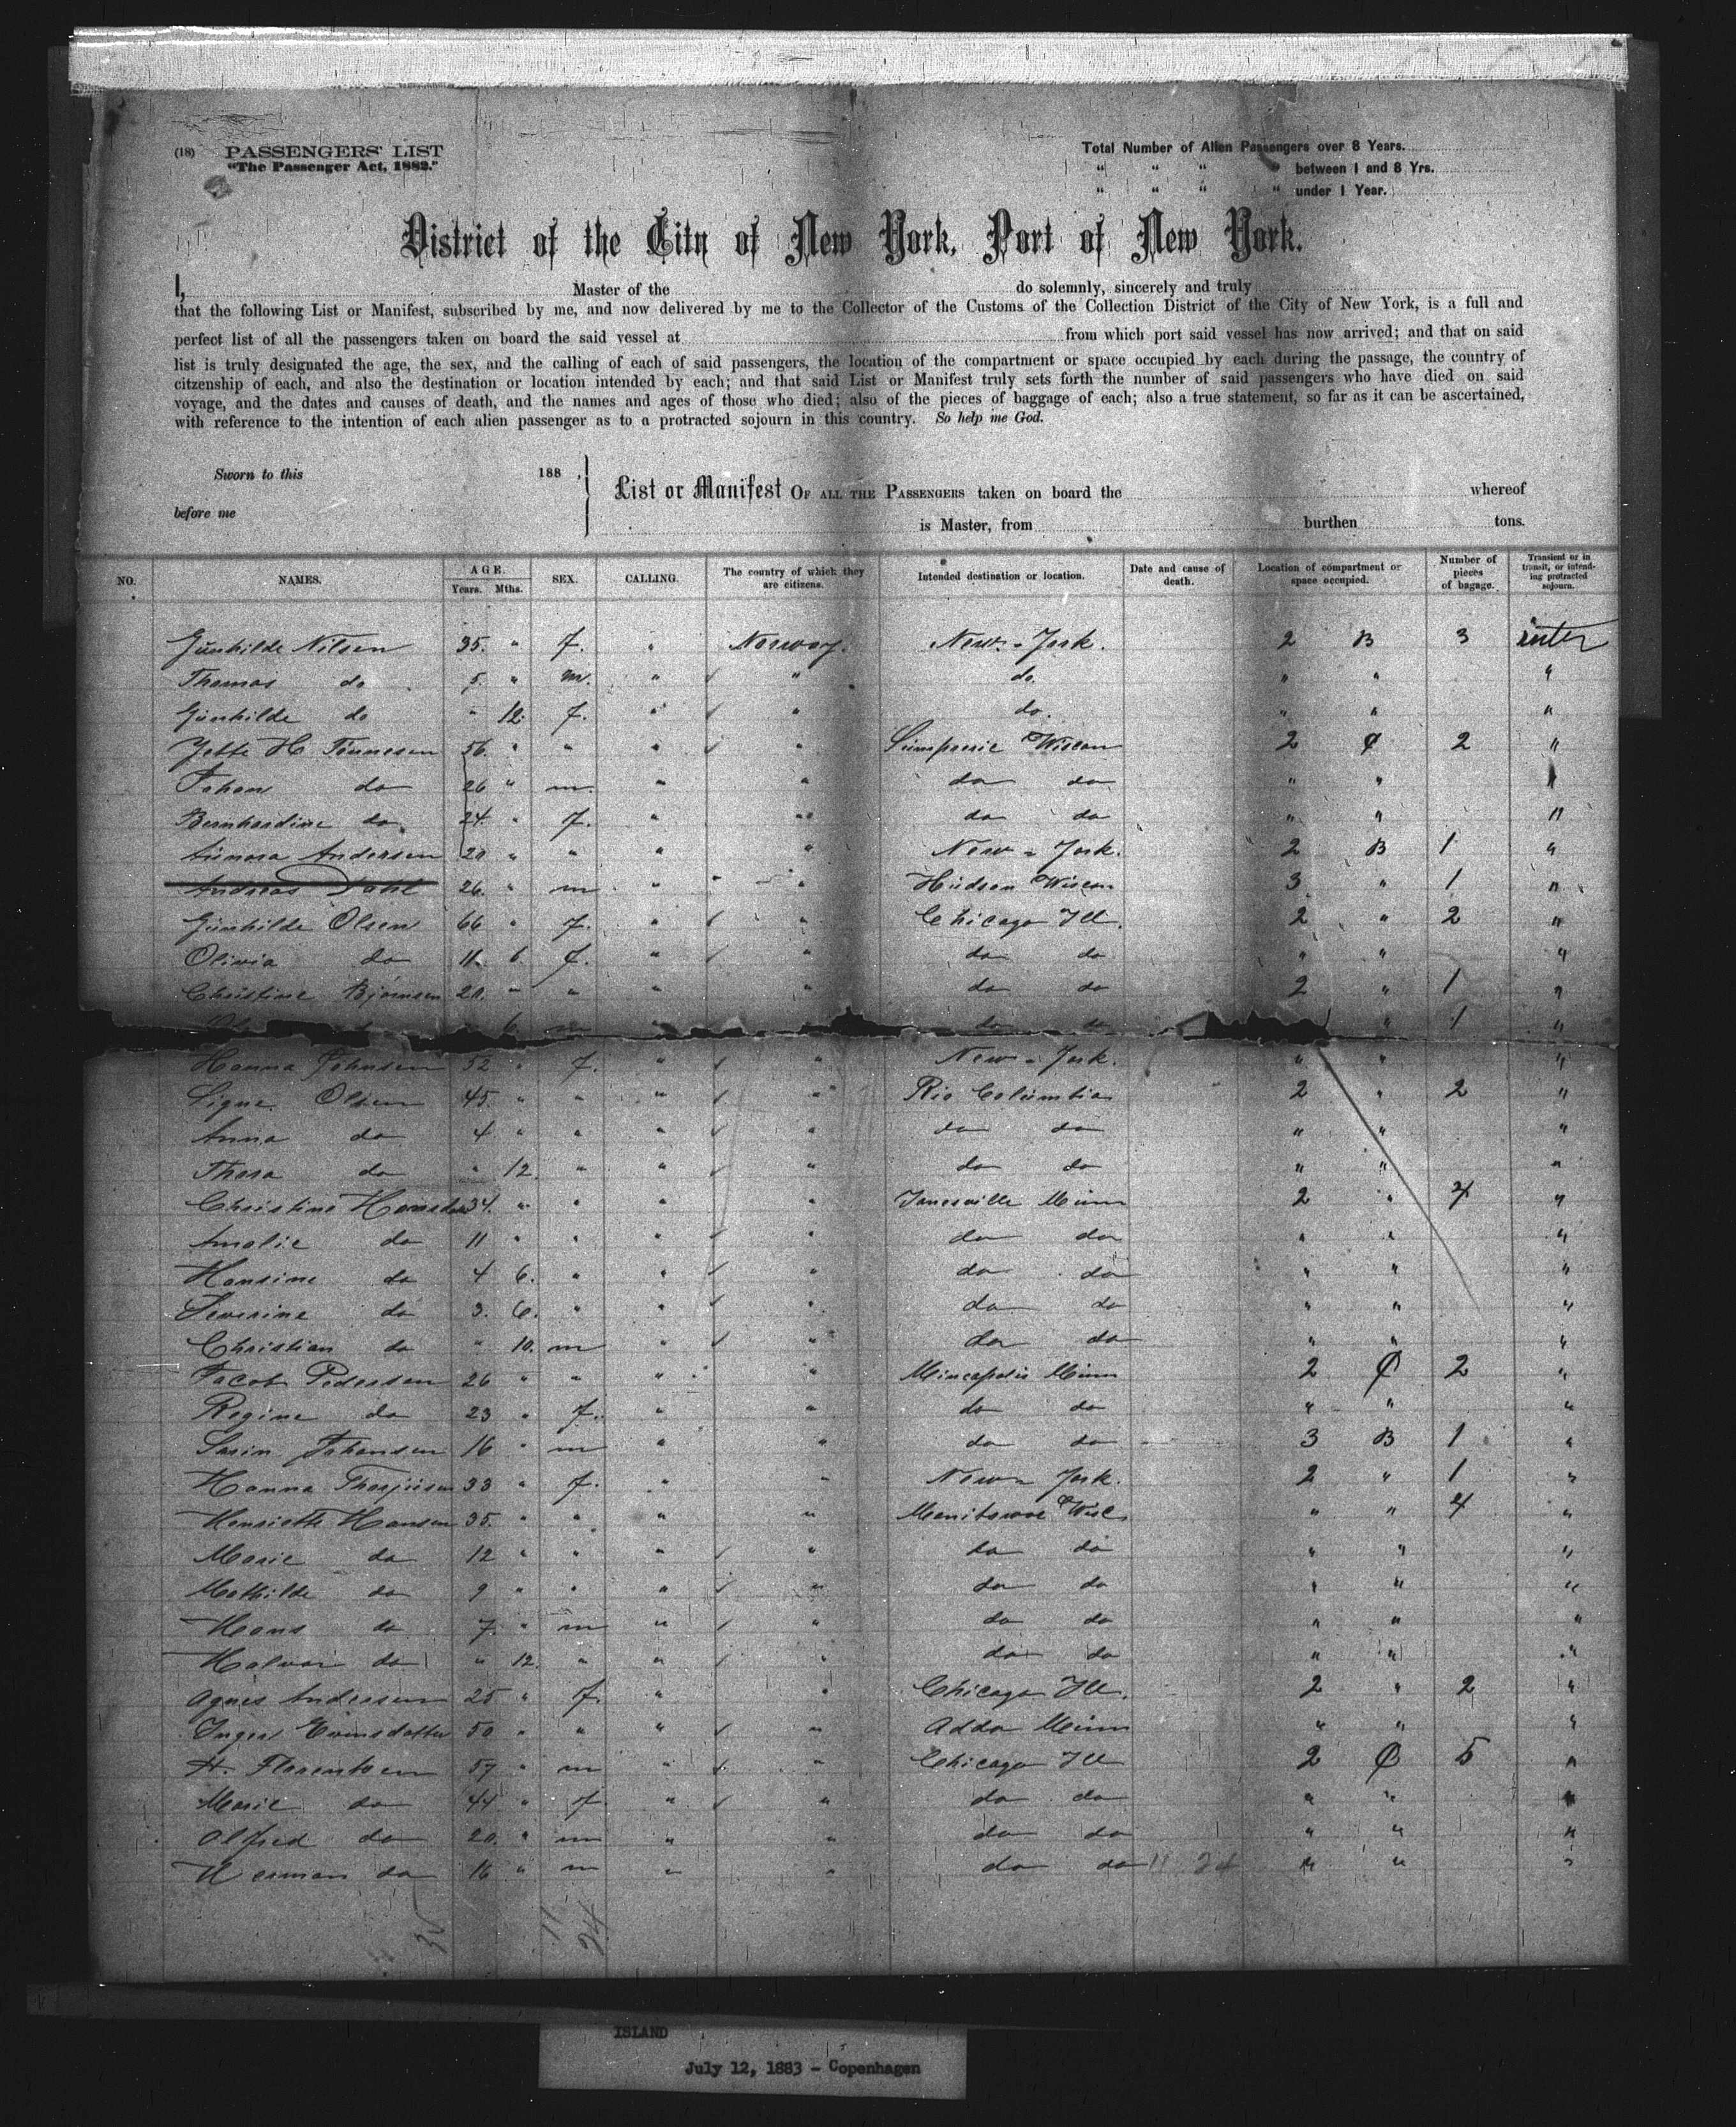 (18) PASSENGERS' LIST
"The Passenger Act, 1882."
Total Number of Alien Passengers over 8 Years.
" " " " between 1 and 8 Yrs.
" " " " under 1 Year.
District of the City of New York, Port of New York.
I, Master of the do solemnly, sincerely and truly
that the following List or Manifest, subscribed by me, and now delivered by me to the Collector of the Customs of the Collection District of the City of New York, is a full and
perfect list of all the passengers taken on board the said vessel at from which port said vessel has now arrived; and that on said
list is truly designated the age, the sex, and the calling of each of said passengers, the location of the compartment or space occupied by each during the passage, the country of
citzenship of each, and also the destination or location intended by each; and that said List or Manifest truly sets forth the number of said passengers who have died on said
voyage, and the dates and causes of death, and the names and ages of those who died; also of the pieces of baggage of each; also a true statement, so far as it can be ascertained,
with reference to the intention of each alien passenger as to a protracted sojourn in this country. So help me God.
Sworn to this 188 .
before me
List or Manifest OF ALL THE PASSENGERS taken on board the whereof
is Master, from burthen tons.
NO. NAMES. AGE. Years. Mths. SEX. CALLING. The country of which they are citizens. Intended destination or location. Date and cause of death. Location of compartment or space occupied. Number of pieces of bagage. Transient or in transit, or intending protracted sojourn.
Gunhilde Nilsen 35. " f. " Norway. New-York. 2 B 3
Thomas do 5. " m. " " do. " " "
Gunhilde do " 12. f. " " do. " " "
Jette H. Tönnesen 56. " " " " Wiscon 2 C 2 "
Johan do 26 " m. " " do do " "
Bernhardine do 24. " f. " " do do " " "
Andersen 20 " " " " New-York. 2 B 1 "
Andreas Dahl 26. " m " " Hudson Wiscon 3 " 1 "
Gunhilde Olsen 66 " f. " " Chicago Ill. 2 " 2 "
Olivia do 11. 6. f. " " do do " " "
Christine Bjornsen 20. " " " " do do 2 " 1 "
do do " 1 "
Hanna Johnsen 52 " f. " " New-York. " " "
Signe Olsen 45. " " " " Rio Columbia 2 " 2 "
Anna do 4 " " " " do do " " "
Thora do " 12 " " " do do " " "
Christine 34. " " " " Janesville Minn 2 " 4 "
Amalie do 11 " " " " do do " " "
Hansine do 4 6. " " " do do " " "
Severine do 3. 6. " " " do do " " "
Christian do " 10. m " " do do " " "
Jacob Pedersen 26 " " " " Mineapolis Minn 2 C 2 "
Regine do 23 " f. " " do do " " "
Johansen 16 " m " " do do 3 B 1 "
Hanna 33 " f. " " New-York. 2 " 1 "
Henriette Hansen 35. " " " " Manitowoc Wisc " " 4 "
Marie do 12 " " " " do do " " "
Mathilde do 9 " " " " do do " " "
Hans do 7. " m " " do do " " "
Halvor do " 12. " " " do do " " "
Agnes Andersen 25 " f. " " Chicago Ill. 2 " 2 "
Inger 50 " " " " Adda Minn " " "
H. Florentsen 57 " m " " Chicago Ill 2 C 5 "
Marie do 44 " f. " " do do " " "
Alfred do 20. " m " " do do " " "
Herman do 16 " m " " do do 11 24 " " "
11
24
ISLAND
July 12, 1883 - Copenhagen